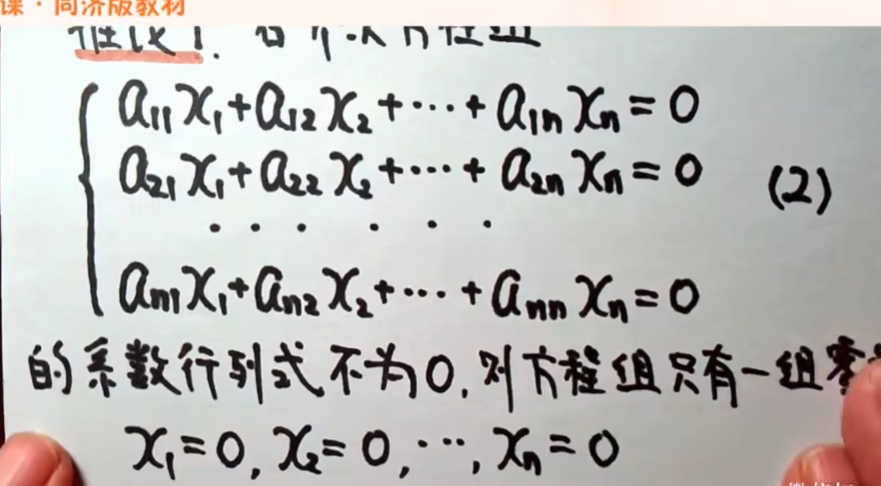 课·同济版教材
推论1. 若齐次方程组
a₁₁x₁+a₁₂x₂+⋯+a₁ₙxₙ=0
a₂₁x₁+a₂₂x₂+⋯+a₂ₙxₙ=0 (2)
· · · · · ·
aₙ₁x₁+aₙ₂x₂+⋯+aₙₙxₙ=0
的系数行列式不为0,则方程组只有一组零
x₁=0, x₂=0, ⋯, xₙ=0